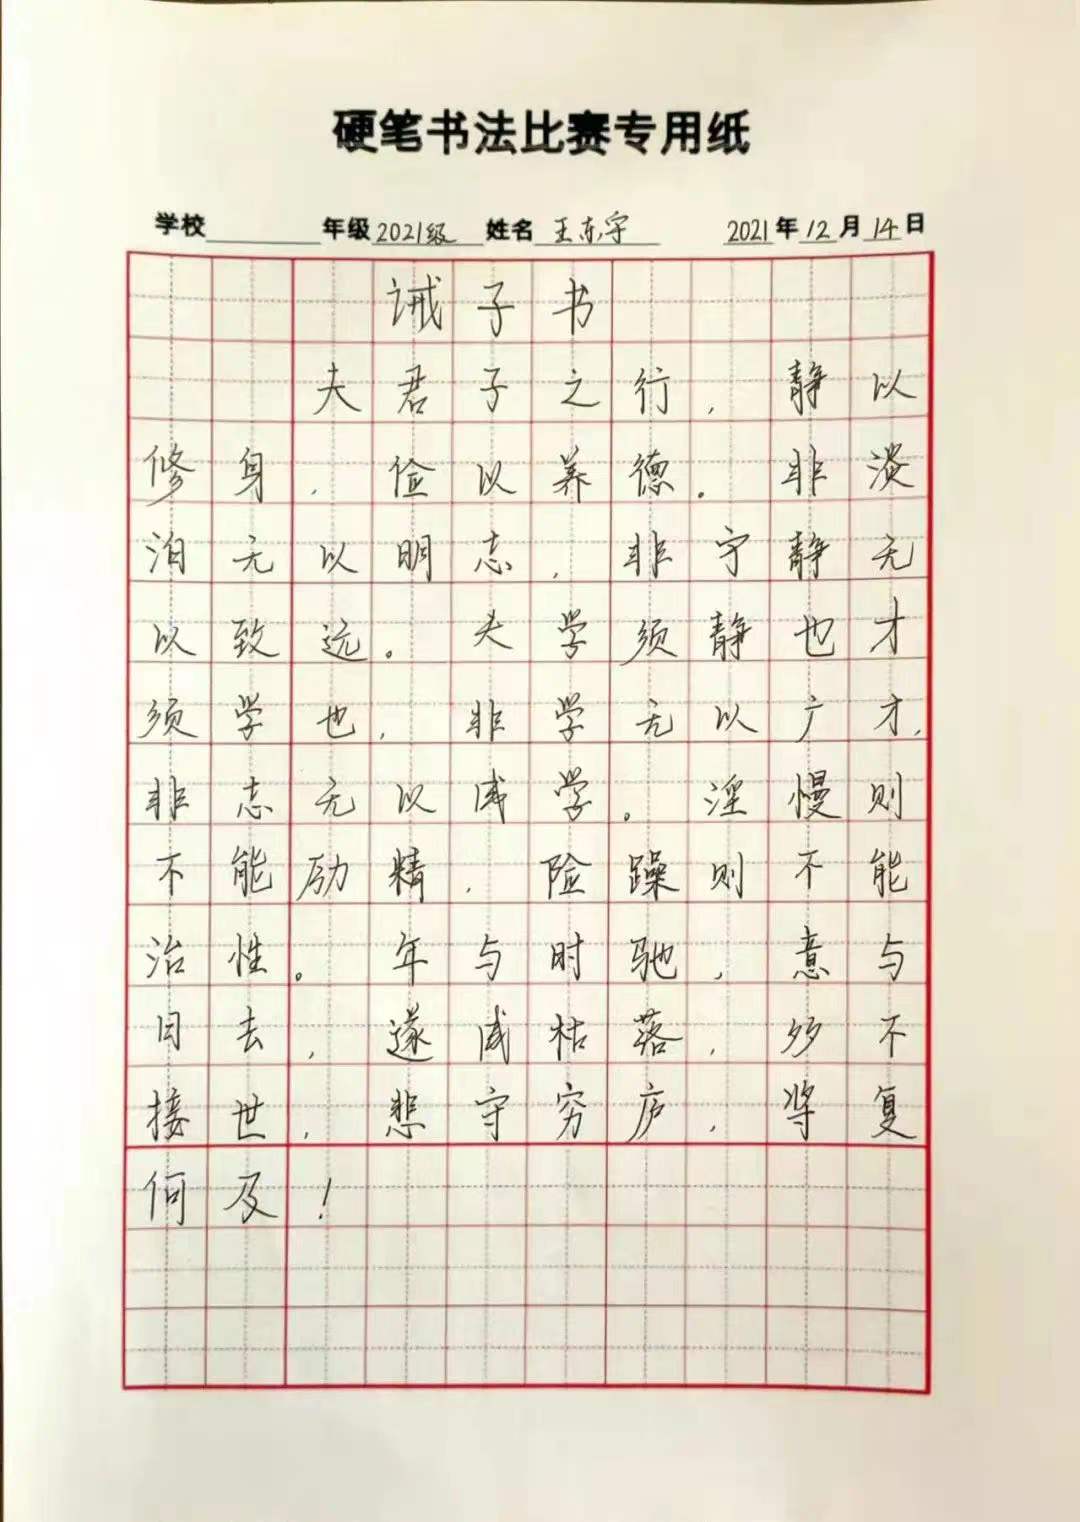 硬笔书法比赛专用纸
学校 年级 2021级 姓名 王东宇 2021年12月14日
诫子书
夫君子之行，静以
修身，俭以养德。非淡
泊无以明志，非宁静无
以致远。夫学须静也才
须学也，非学无以广才，
非志无以成学。淫慢则
不能励精，险躁则不能
治性。年与时驰，意与
日去，遂成枯落，多不
接世，悲守穷庐，将复
何及！